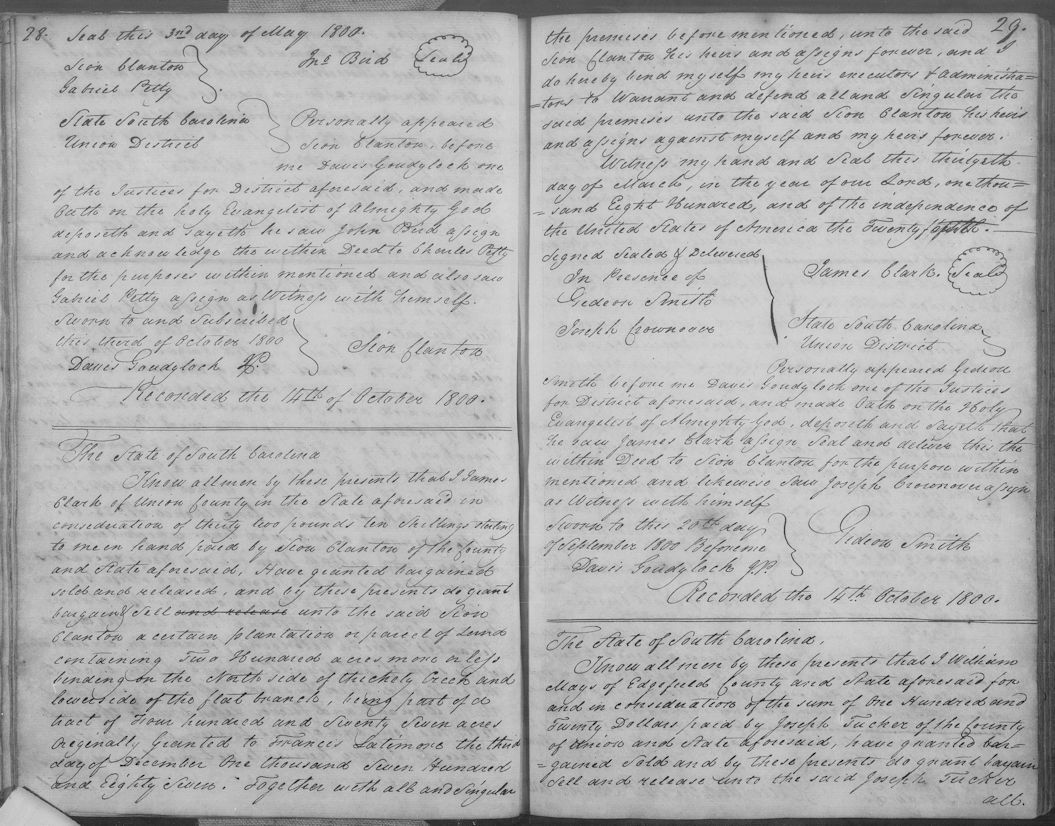 28. Seal this 3rd day of May 1800.
Sion Clanton
Gabriel Petty
Jno Bird Seal
State South Carolina
Union District
Personally appeared
Sion Clanton, before
me Davis Goudylock one
of the Justices for District aforesaid, and made
Oath on the holy Evangelest of Almighty God
deposeth and sayeth he saw John Bird assign
and acknowledge the within Deed to Charles Petty
for the purposes within mentioned and also saw
Gabriel Petty assign as Witness with himself.
Sworn to and Subscribed
this third of October 1800
Davis Goudylock J.P.
Sion Clanton
Recorded the 14th of October 1800.
The State of South Carolina
Know all men by these presents that I James
Clark of Union County in the State aforesaid in
consideration of thirty two pounds ten Shillings sterling
to me in hand paid by Sion Clanton of the County
and State aforesaid, Have granted bargained
sold and released, and by these presents do grant
bargain & Sell and release unto the said Sion
Clanton a certain plantation or parcel of Land
containing Two Hundred acres more or less
binding on the North side of thickety Creek and
lower side of the flat branch, being part of a
tract of Four hundred and Seventy Seven acres
Originally Granted to Francis Latimore the third
day of December One thousand Seven Hundred
and Eighty Seven. Together with all and Singular
29.
the premises before mentioned, unto the said
Sion Clanton his heirs and assigns forever, and I
do hereby bend myself my heirs executors & administra=
=tors to Warrant and defend all and Singular the
said premises unto the said Sion Clanton his heirs
and assigns against myself and my heirs forever.
Witness my hand and Seal this thirtyeth
day of March, in the year of our Lord, one thou=
=sand Eight Hundred, and of the independence of
the United States of America the Twenty fourth.
Signed Sealed & Delivered
In Presence of
Gedeon Smith
Joseph Crownover
James Clark Seal
State South Carolina
Union District
Personally appeared Gedeon
Smith before me Davis Goudylock one of the Justices
for District aforesaid, and made Oath on the Holy
Evangelest of Almighty God, deposeth and Sayeth that
he Saw James Clark assign Seal and deliver this the
within Deed to Sion Clanton for the purpose within
mentioned and likewise Saw Joseph Crownover assign
as Witness with himself
Sworn to this 20th day
of September 1800 Before me
Davis Goudylock J.P.
Gedeon Smith
Recorded the 14th October 1800.
The State of South Carolina,
Know all men by these presents that I William
Mays of Edgefield County and State aforesaid for
and in consideration of the sum of One Hundred and
Twenty Dollars paid by Joseph Tucker of the County
of Union and State aforesaid, have granted bar=
=gained Sold and by these presents do grant bargain
Sell and release unto the said Joseph Tucker
all.